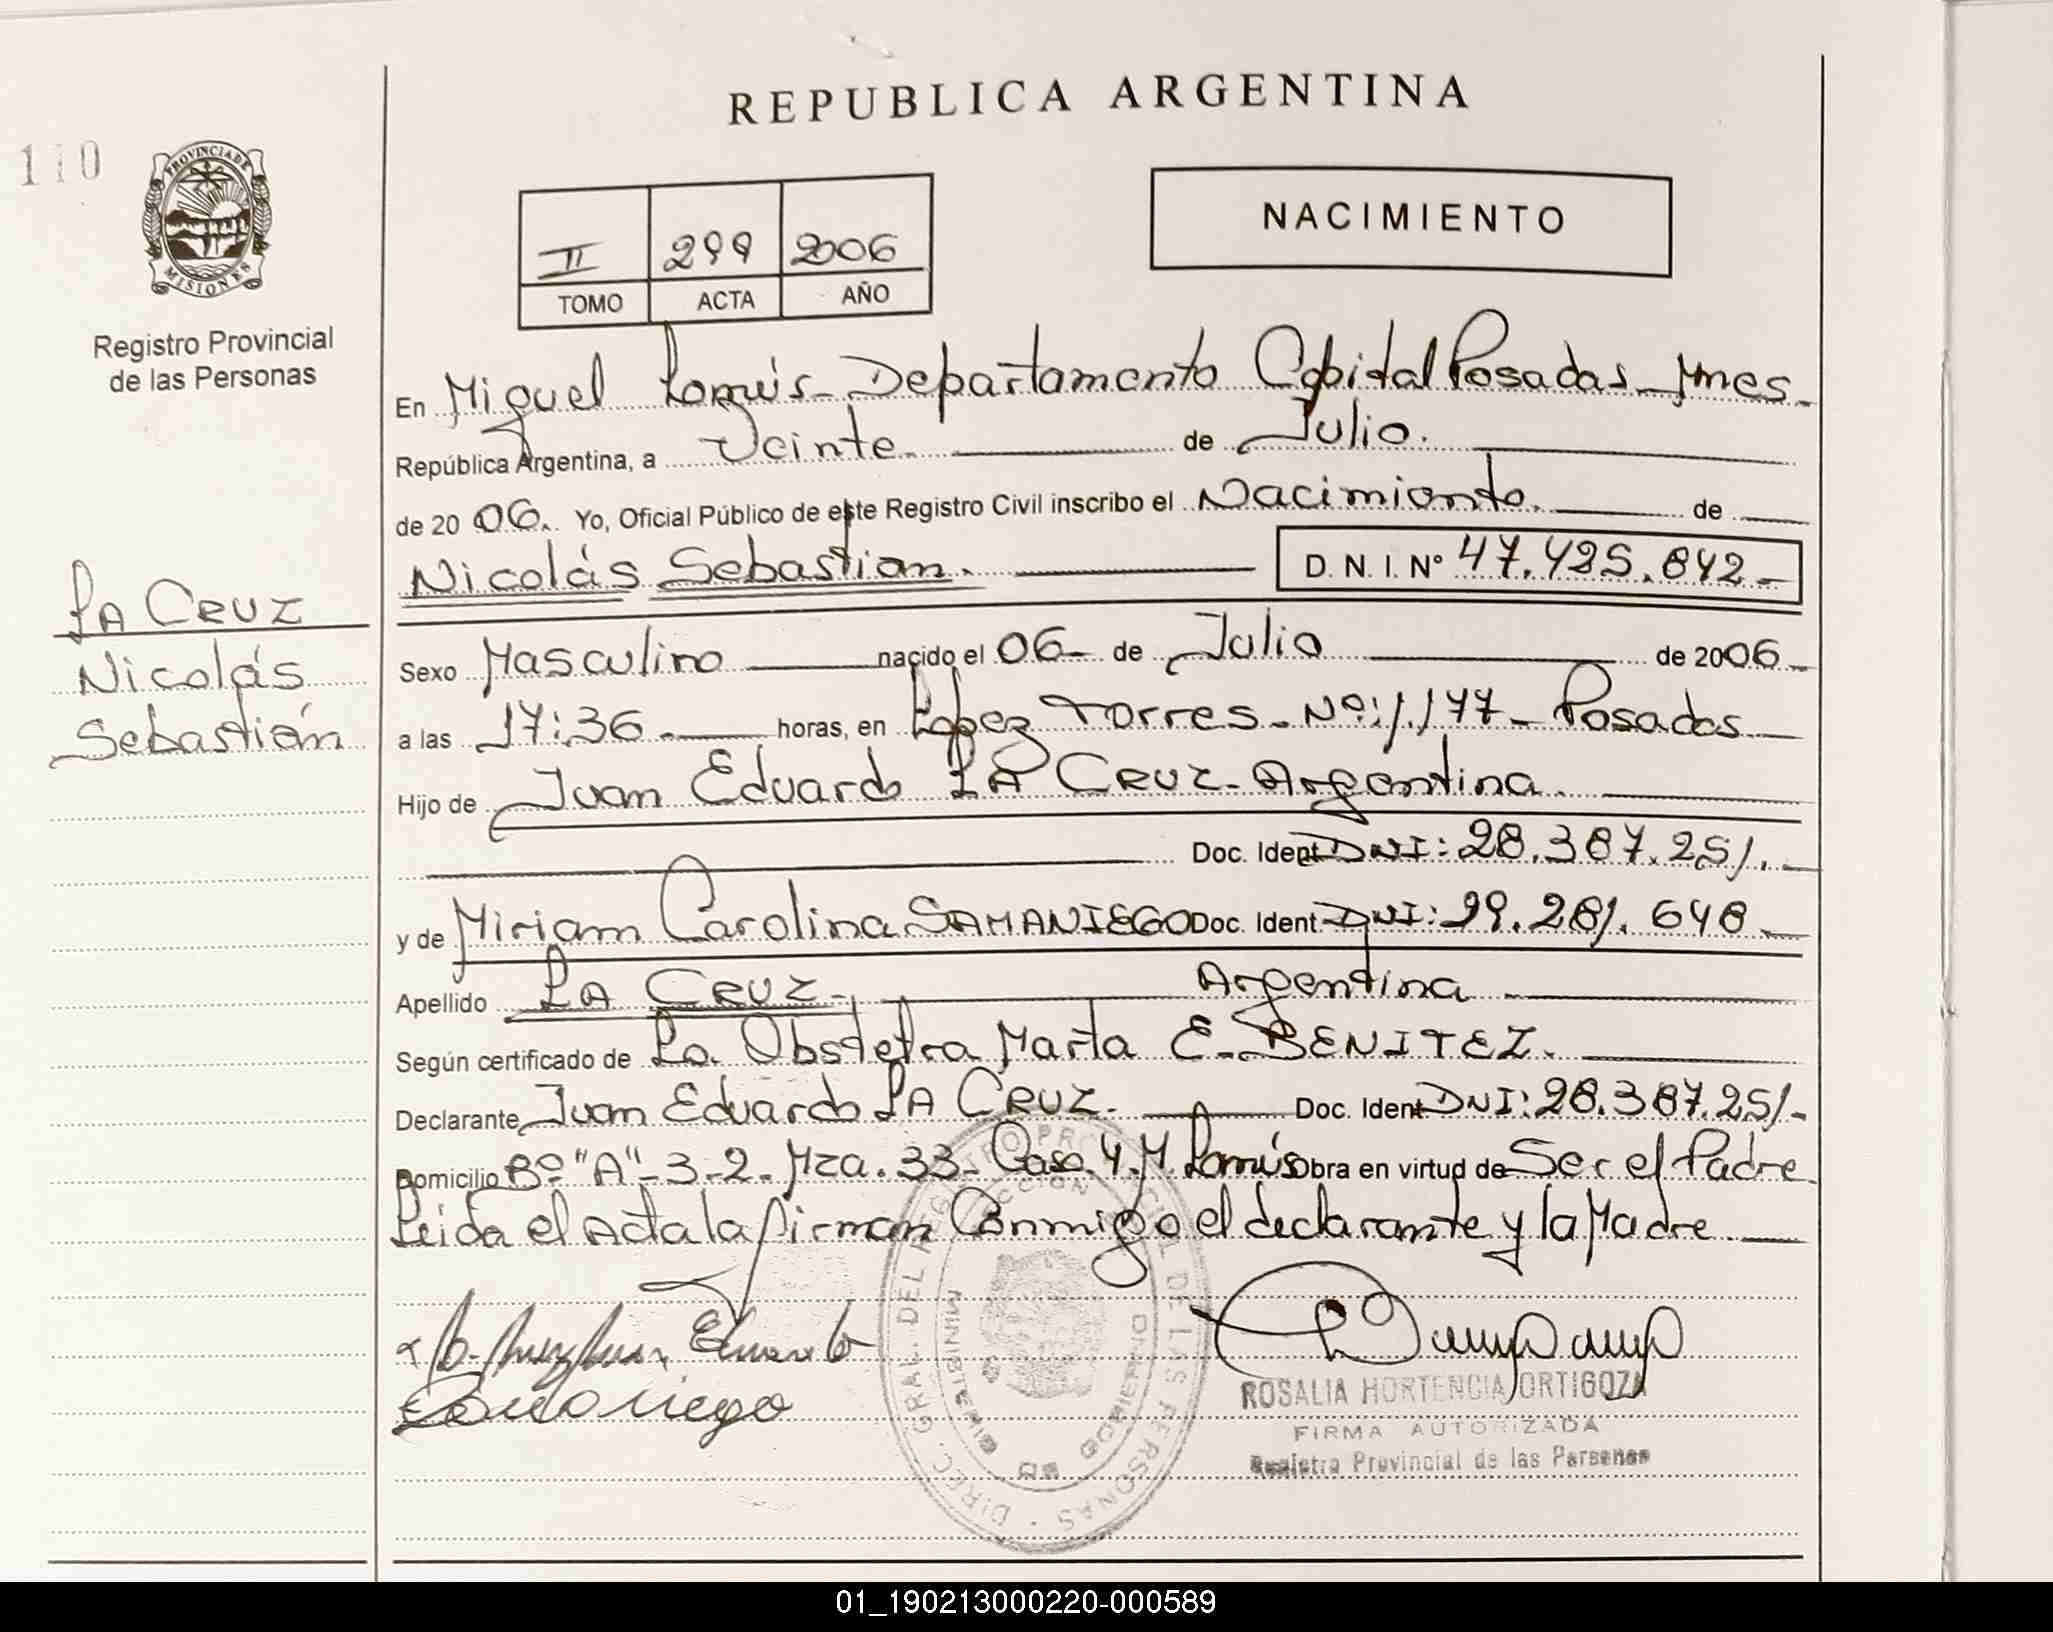 REPUBLICA ARGENTINA
110
PROVINCIA DE
MISIONES
Registro Provincial
de las Personas
II 299 2006
TOMO ACTA AÑO
NACIMIENTO
En Miguel Lanús - Departamento Capital Posadas - Mnes -
República Argentina, a Veinte de Julio.
de 20 06. Yo, Oficial Público de este Registro Civil inscribo el Nacimiento. de
Nicolás Sebastian. D. N. I. Nº 47.425.842 -
LA CRUZ
Nicolás
Sebastián
Sexo Masculino nacido el 06 - de Julio de 2006 -
a las 17:36 - horas, en López Torres - Nº: 1.177 - Posadas
Hijo de Juan Eduardo LA CRUZ - Argentina.
Doc. Ident DNI: 28.387.251. -
y de Miriam Carolina SAMANIEGO Doc. Ident DNI: 29.281.648 -
Apellido LA CRUZ - Argentina
Según certificado de La Obstetra Marta E. BENITEZ.
Declarante Juan Eduardo LA CRUZ - Doc. Ident DNI: 28.387.251 -
Domicilio Bº "A" - 3 - 2 - Mza. 33 - Casa 4. M. Lanús obra en virtud de Ser el Padre
Leida el Acta la firman Conmigo el declarante y la Madre
Eduardo
ROSALIA HORTENCIA ORTIGOZA
FIRMA AUTORIZADA
Registro Provincial de las Personas
DIREC. GRAL. DEL REGISTRO PROVINCIAL DE LAS PERSONAS
MINISTERIO DE GOBIERNO
01_190213000220-000589